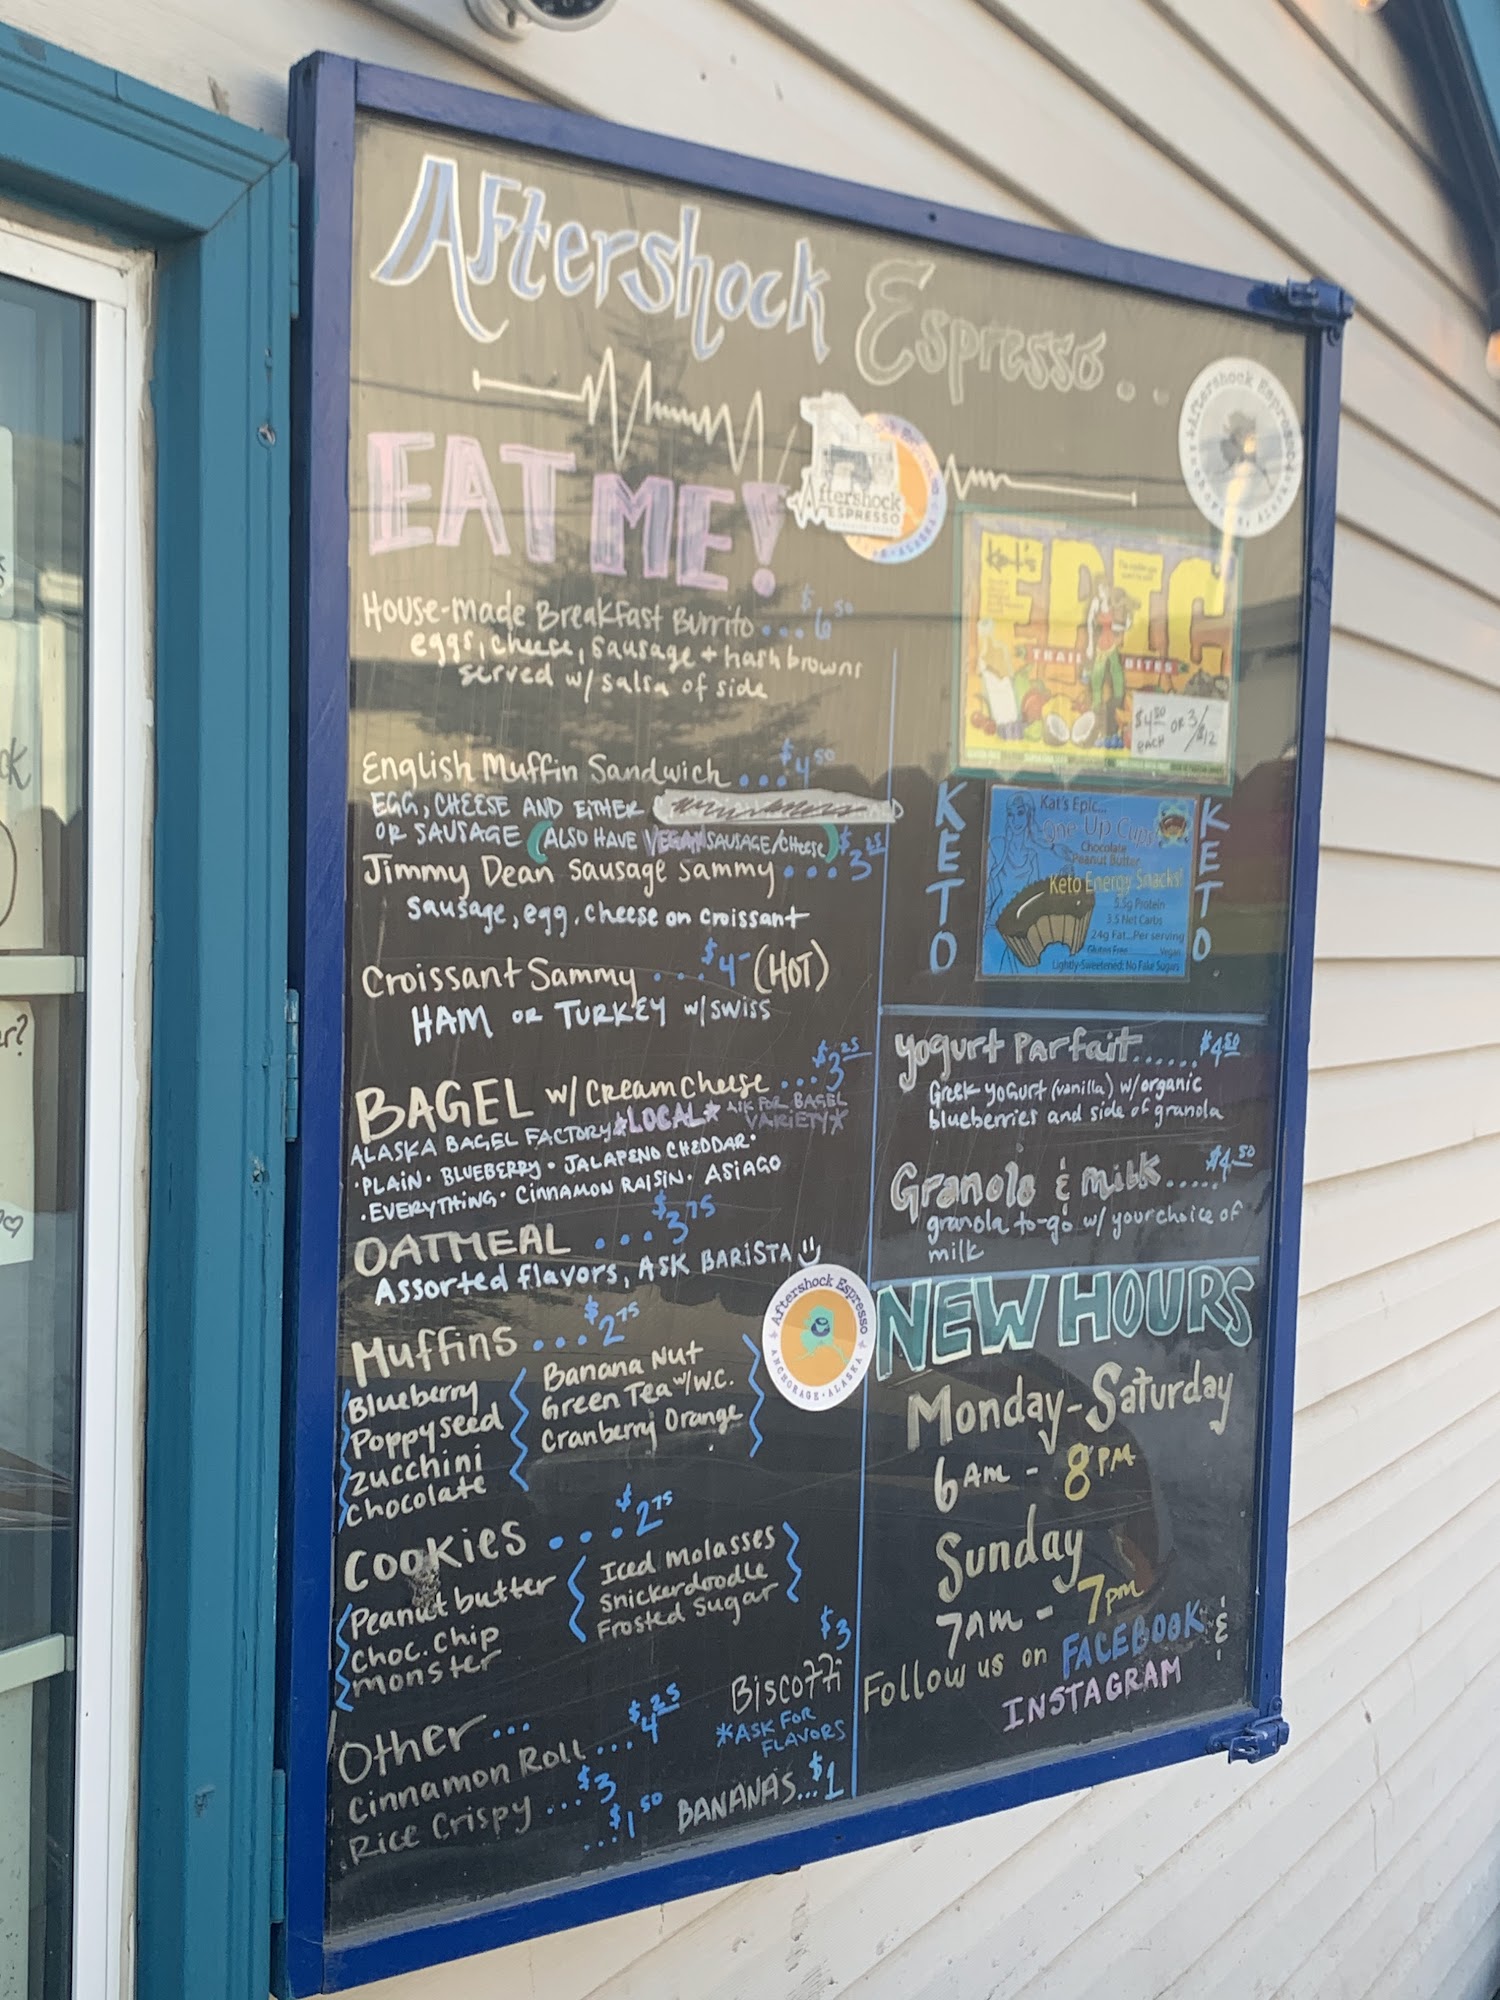 Aftershock Espresso...
EAT ME!
Aftershock
ESPRESSO
Aftershock Espresso
House-made Breakfast Burrito... $6.50
eggs, cheese, sausage + hash browns
served w/ salsa of side
English Muffin Sandwich... $4.50
EGG, CHEESE AND EITHER
OR SAUSAGE (ALSO HAVE VEGAN SAUSAGE/CHEESE)
Jimmy Dean Sausage Sammy... $3.25
sausage, egg, cheese on croissant
Croissant Sammy... $4- (HOT)
HAM OR TURKEY w/ SWISS
BAGEL w/ CREAM CHEESE... $3.25
ALASKA BAGEL FACTORY *LOCAL* ASK FOR BAGEL VARIETY*
• PLAIN • BLUEBERRY • JALAPENO CHEDDAR •
• EVERYTHING • CINNAMON RAISIN • ASIAGO
OATMEAL ... $3.75
Assorted flavors, ASK BARISTA
Muffins ... $2.75
Blueberry
Poppyseed
Zucchini
Chocolate
Banana Nut
Green Tea w/W.C.
Cranberry Orange
Cookies ... $2.75
Peanut butter
Choc. Chip
monster
Iced Molasses
Snickerdoodle
Frosted Sugar
Other ...
Cinnamon Roll ... $4.25
Rice Crispy ... $3
... $1.50
$3
Biscotti
*ASK FOR
FLAVORS
BANANAS... $1
Kat's
EPIC
TRAIL BITES
$4.50 EACH OR 3/$12
KETO
Kat's Epic...
One-Up Cups
Chocolate
Peanut Butter
Keto Energy Snacks!
5.5g Protein
3.5 Net Carbs
24g Fat...Per serving
Gluten Free Vegan
Lightly-Sweetened; No Fake Sugars
KETO
Yogurt Parfait...... $4.50
Greek yogurt (vanilla) w/organic
blueberries and side of granola
Granola & Milk..... $4.50
granola to-go w/ your choice of
milk
Aftershock Espresso
ANCHORAGE • ALASKA
NEW HOURS
Monday-Saturday
6AM - 8PM
Sunday
7AM - 7pm
Follow us on FACEBOOK &
INSTAGRAM